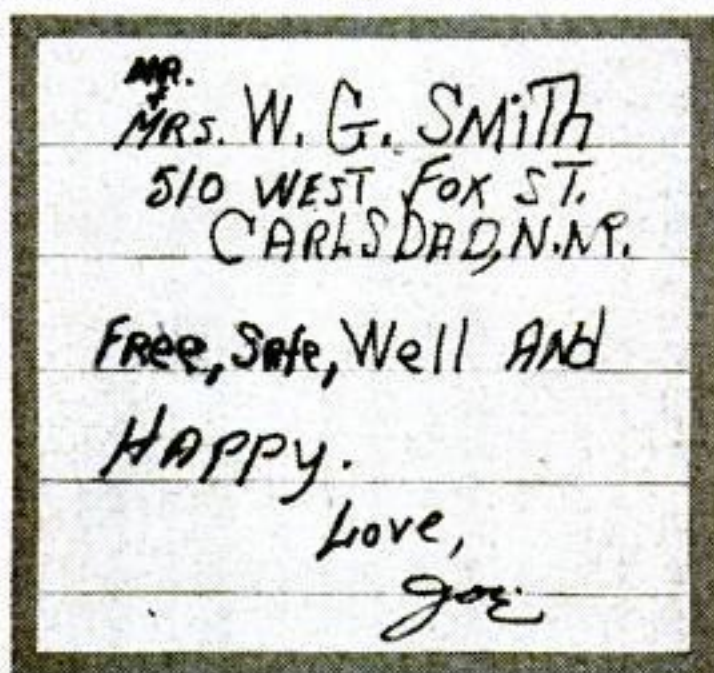 MR.
+
MRS. W. G. SMITH
510 WEST FOX ST.
CARLSDAD, N.M.
FRee, Safe, Well AND
HAPPY.
Love,
Joe